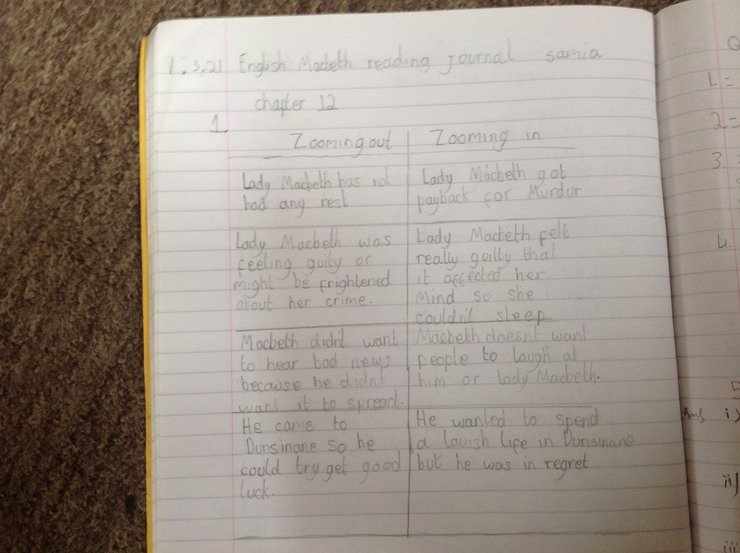 1.3.21 English Macbeth reading journal samia
chapter 12
1.
Zooming out
Lady Macbeth has not
had any rest
Lady Macbeth was
feeling guily or
might be frightened
about her crime.
Macbeth didnt want
to hear bad news
because he didnt
want it to spread.
He came to
Dunsinane so he
could try get good
luck.
Zooming in
Lady Macbeth got
payback for Murdur
Lady Macbeth felt
really guilty that
it affected her
Mind so she
couldn't sleep
Macbeth doesnt want
people to laugh at
him or lady Macbeth.
He wanted to spend
a lavish life in Dunsinane
but he was in regret
1. =
2 =
3.
4.
5
i)
ii)
iii)